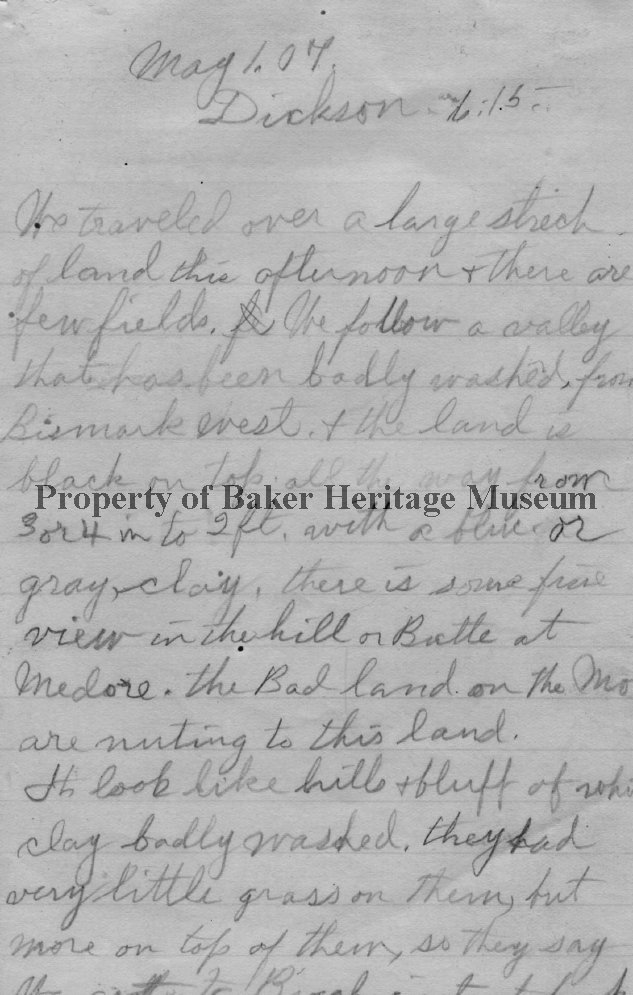 May 1. 07.
Dickson 6:15.
We traveled over a large strech
of land this afternoon + there are
few fields. We follow a valley
that has been badly washed, from
Bismark West. + the land is
black on top all the way from
Property of Baker Heritage Museum
3 or 4 in to 2 ft. with a blue or
gray, clay, there is some fine
view in the hill or Butte at
Medore. the Bad land on the Mo
are nuting to this land.
It look like hills + bluff of whi
clay badly washed. they had
very little grass on them, but
more on top of them, so they say